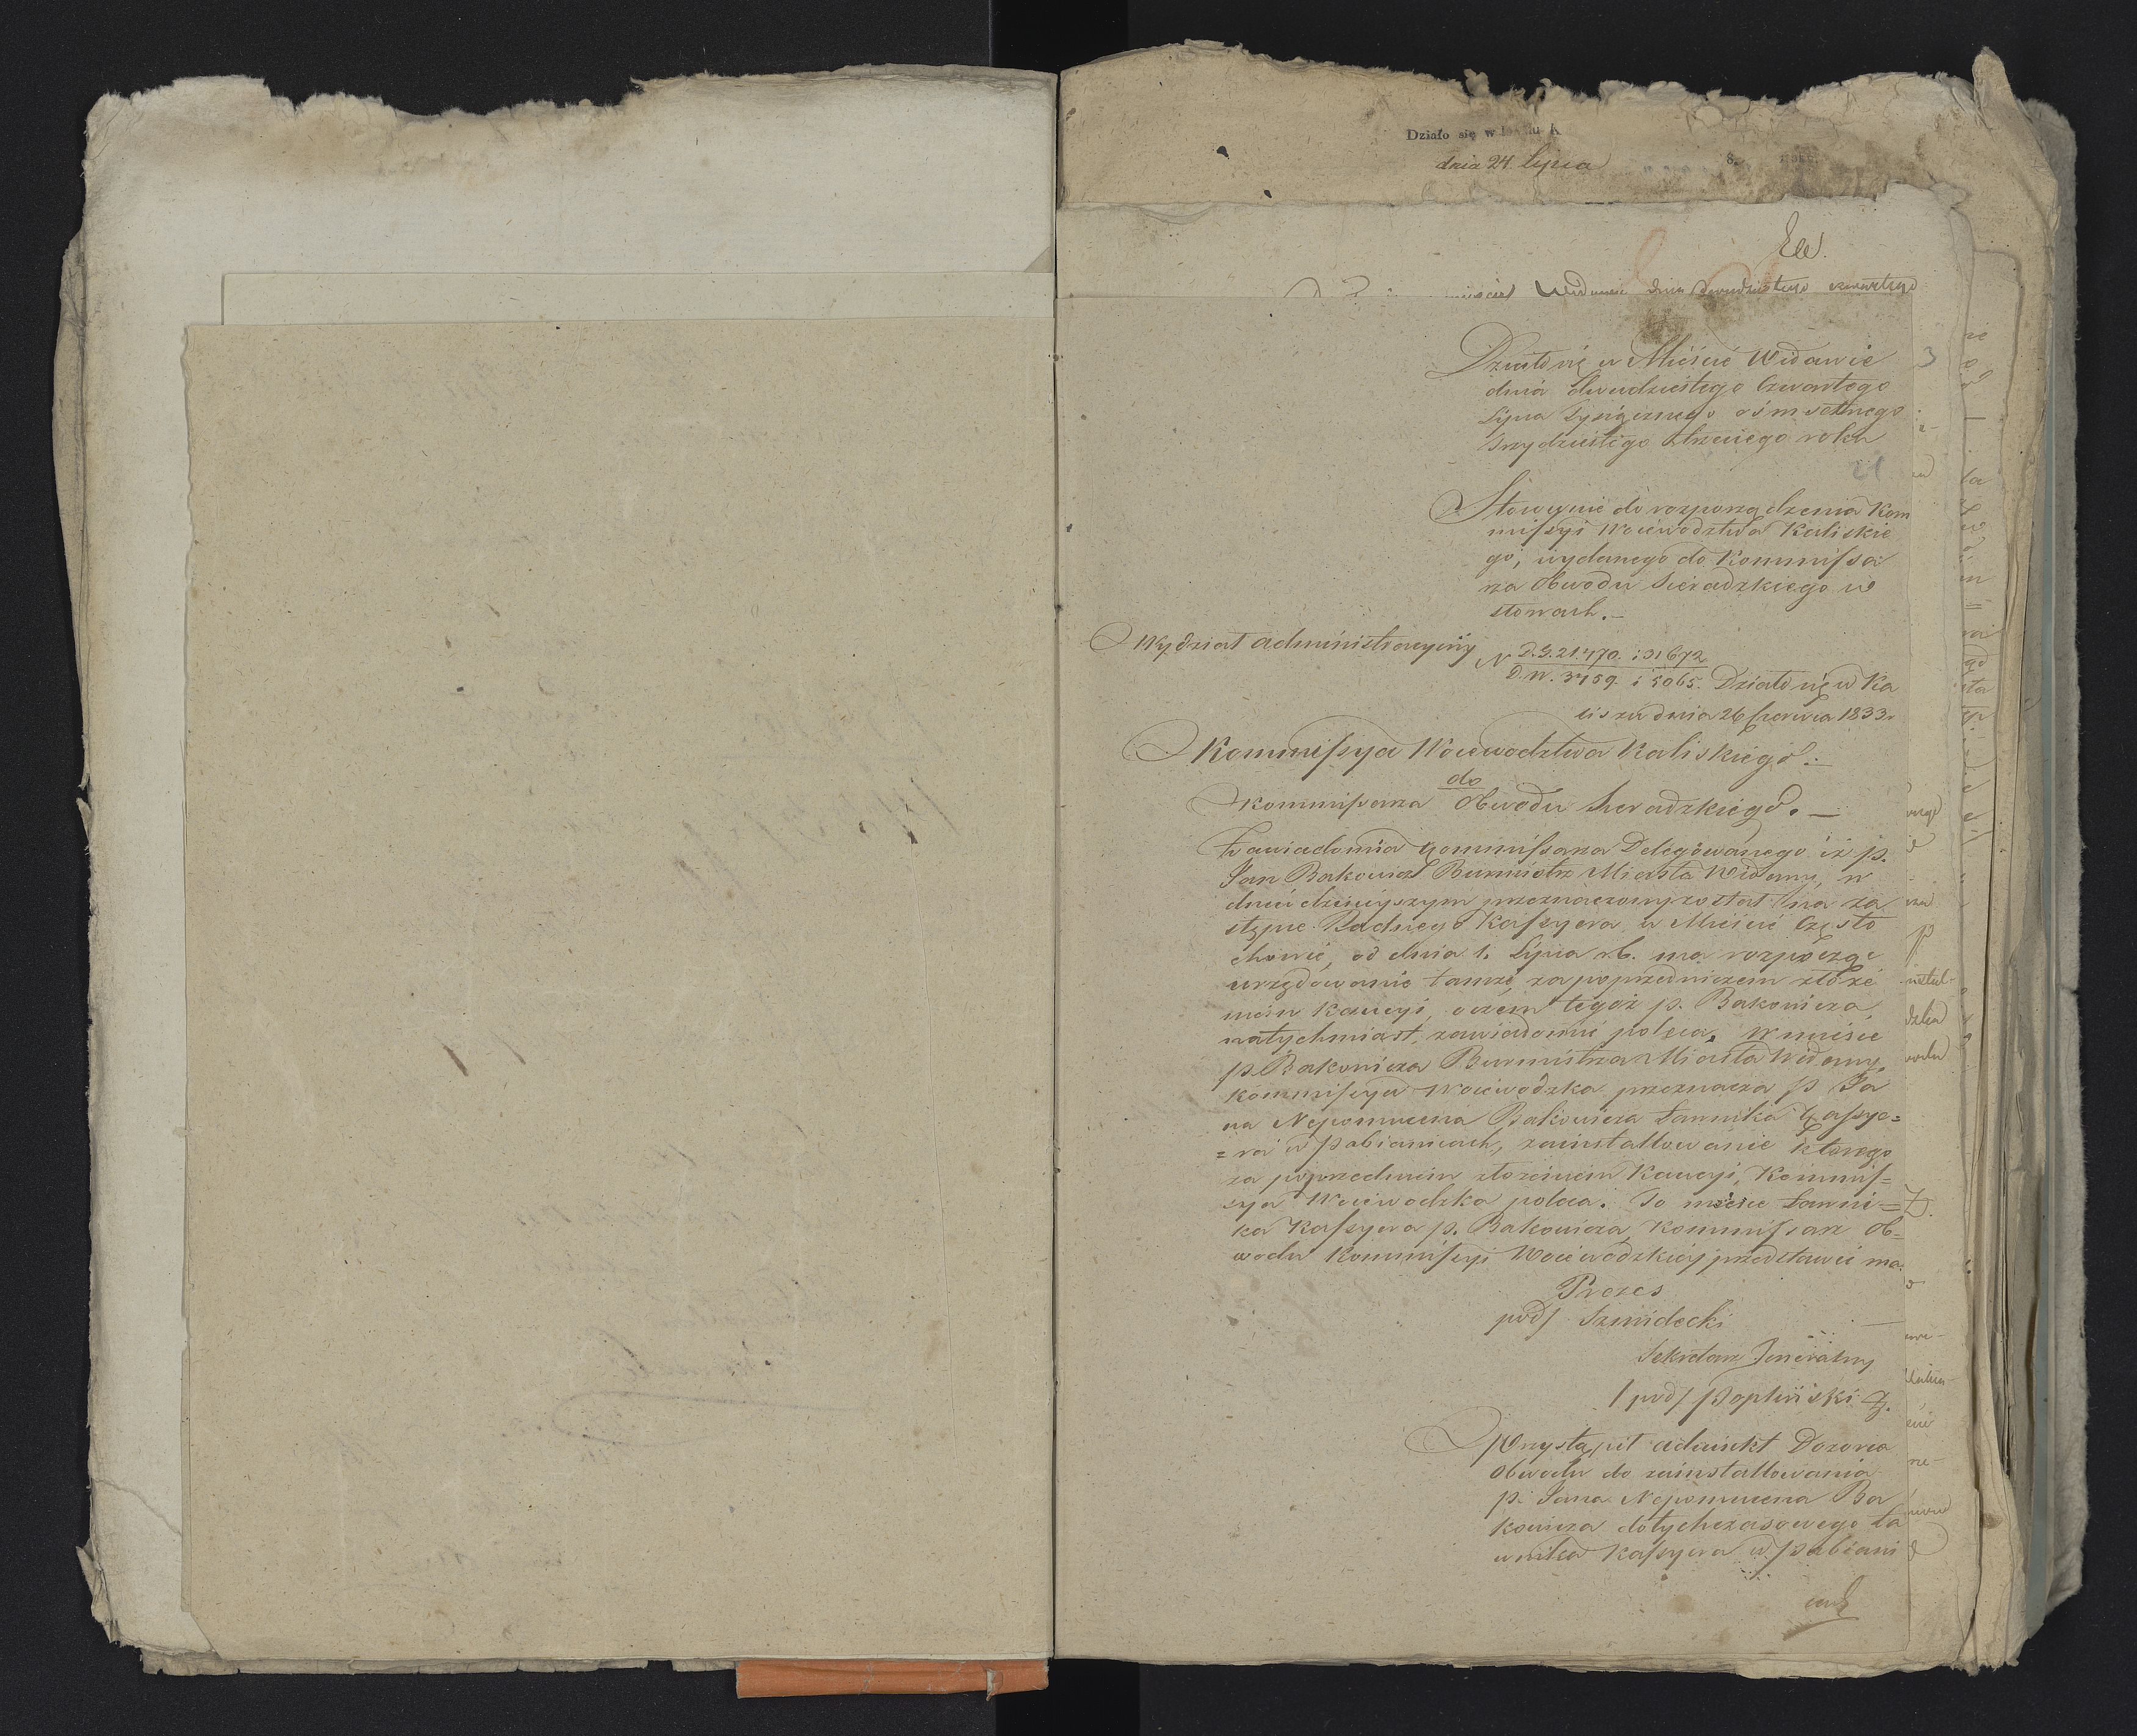 Działo się w
dnia 24 Lipca
8.
Ew.
Widawie dnia dwudziestego czwartego
Działo się w Mieście Widawie
dnia dwudziestego czwartego
Lipca Tysiącznego ośmsetnego
trzydziestego trzeciego roku
21
Stosownie do rozporządzenia Kom
missyi Woiewództwa Kaliskie
go, wydanego do Kommissa
rza Obwodu Sieradzkiego w
słowach. –
Wydział administracyiny N D.G. 21,470. i 31672
D.W. 3759. i 5065. Działo się w Ka
liszu dnia 26 Czerwca 1833 r.
Kommissya Woiewództwa Kaliskiego. –
do
Kommissarza Obwodu Sieradzkiego. –
Zawiadomia Kommissarza Delegowanego iż p.
Jan Bakowicz Burmistrz Miasta Widawy, w
dniu dzisiyszym przeznaczony został na za
stępcę Radnego Kassyera w Mieście Często
chowie, od dnia 1. Lipca r.b. ma rozpocząć
urzędowanie tamże, za poprzedniczem złoże
niem Kaucyi, oczem tegoż p. Bakowicza
natychmiast zawiadomić poleca. W mieisce
p. Bakowicza Burmistrza Miasta Widawy,
Kommissya Woiewódzka przeznacza p Ja
na Nepomucena Bakowicza Ławnika Kassye=
=ra w Pabianicach, zainstallowanie którego
za poprzedniem złożeniem Kaucyi, Kommis=
sya Woiewodzka poleca. To mieisce Ławni=
ka Kassyera p. Bakowicza, Kommissarz Ob=
wodu Kommissyi Woiewodzkiey przedstawić ma.
Prezes
pod/ Szmidecki
Sekretarz Jeneralny
/pod/ Popliński
Przystąpił adiunkt Dozorca
Obwodu do zainstallowania
p. Jana Nepomucena Ba
kowicza dotychczasowego Ła
wnika Kassyera w Pabiani
cach